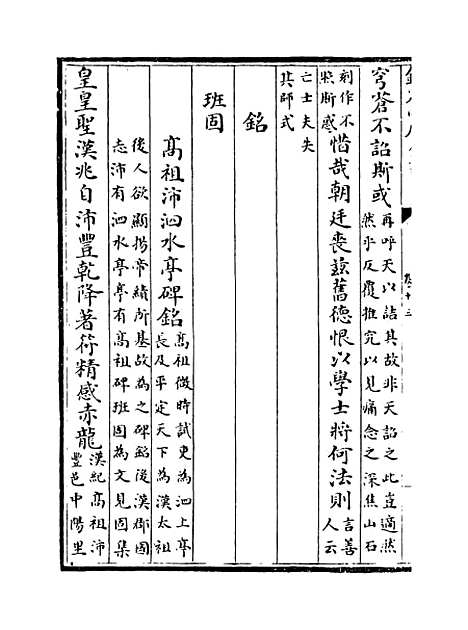 穹蒼不詔斯或
再呼天以詰其故非天詔之此豈適然
然乎反覆推究以見痛念之深焦山石
刻作不
照斯惑
惜哉朝廷喪茲舊德恨以學士將何法則
言善
人云
亡士夫失
其師式
銘
班固
高祖沛泗水亭碑銘
高祖微時試吏為泗上亭
長及平定天下為漢太祖
後人欲顯揚帝績所基故為之碑銘後漢郡國
志沛有泗水亭亭有高祖碑班固為文見固集
皇皇聖漢兆自沛豐乾降著符精感赤龍
漢紀高祖沛
豐邑中陽里